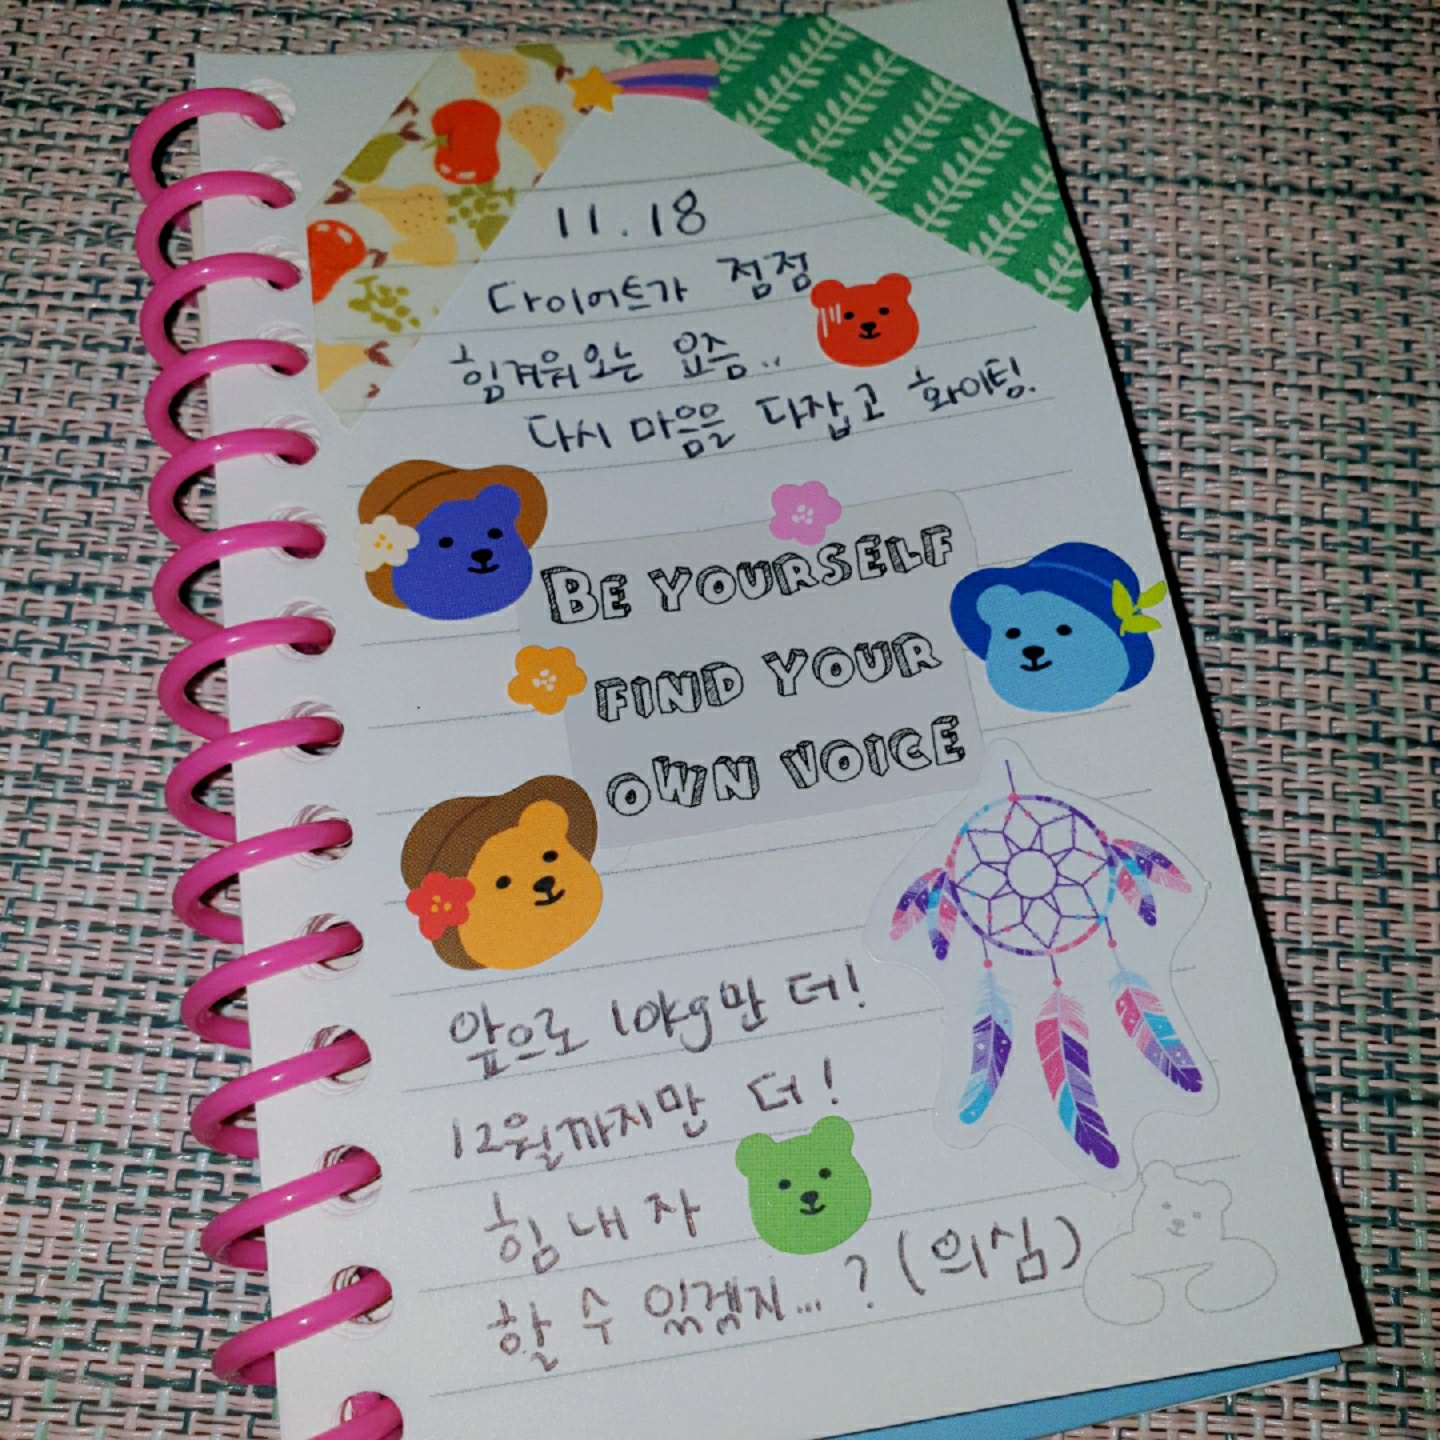 11.18
다이어트가 점점
힘겨워오는 요즘..
다시 마음을 다잡고 화이팅.
BE YOURSELF
FIND YOUR
OWN VOICE
앞으로 10kg만 더!
12월까지만 더!
힘내자
할 수 있겠지...? (의심)